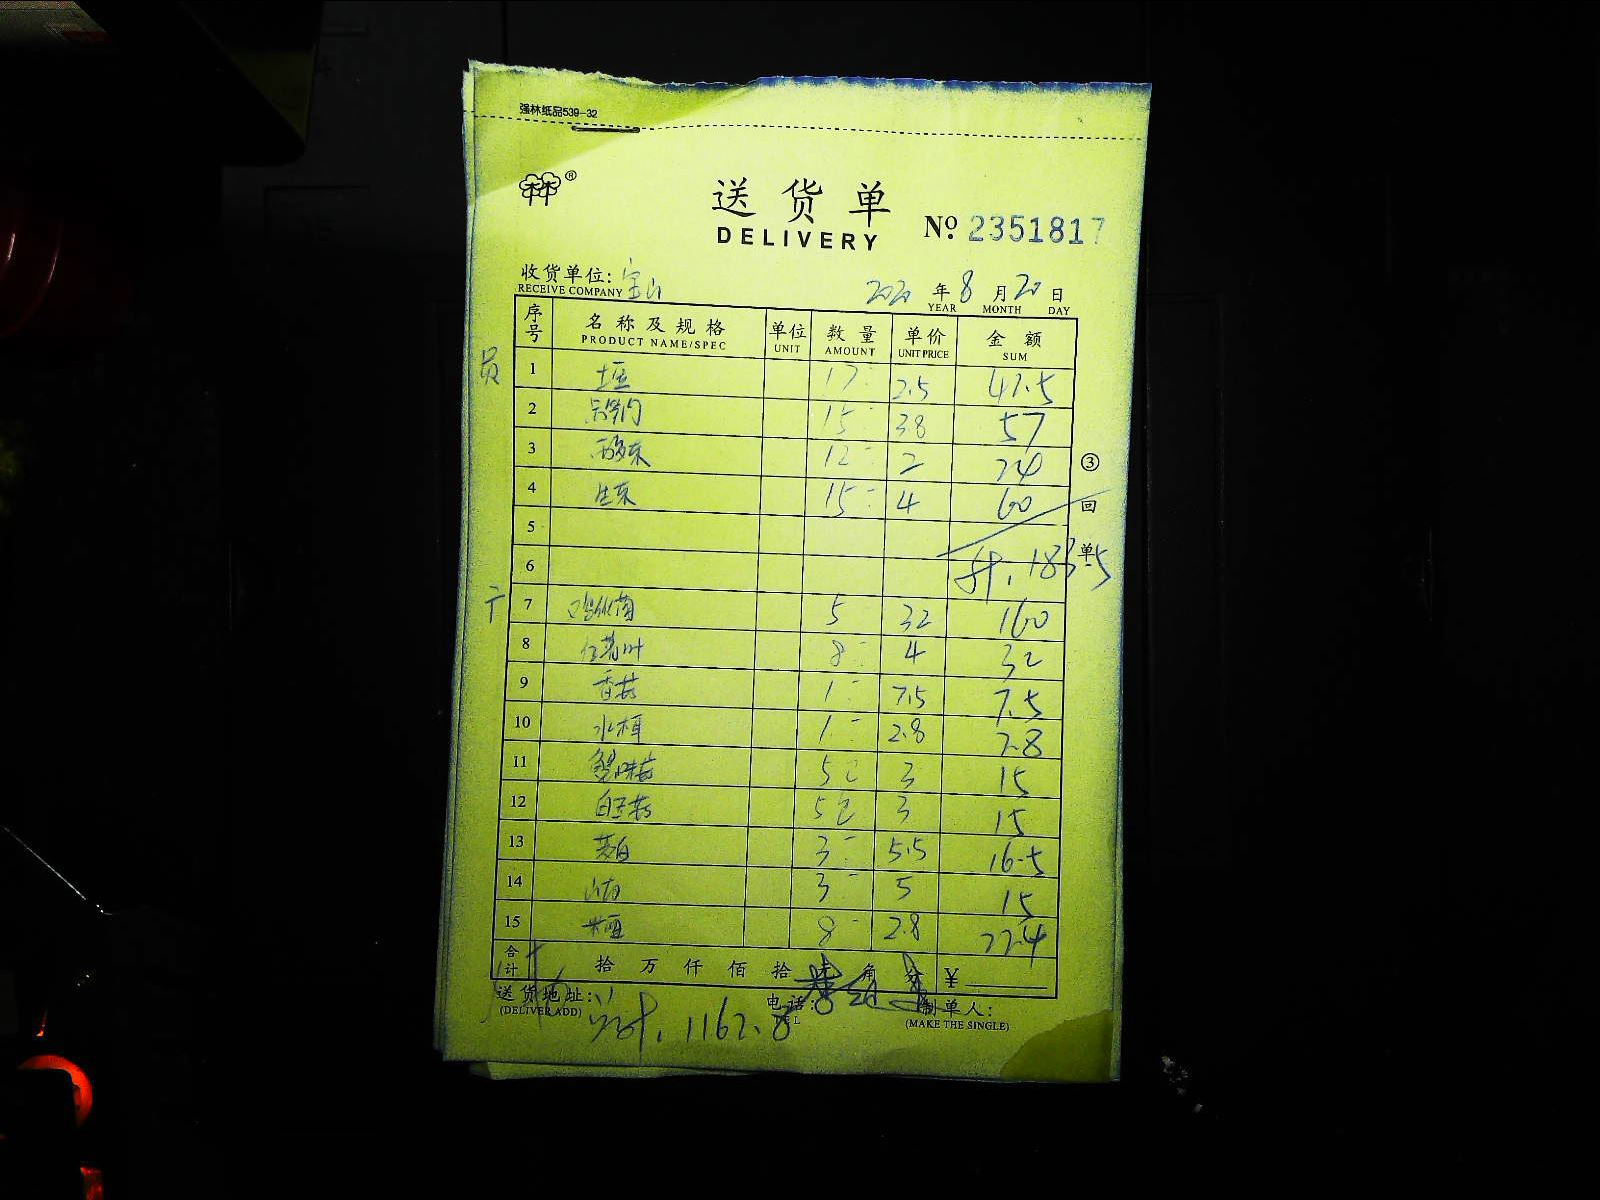 强林纸品539-32
送货单
DELIVERY
№ 2351817
收货单位: 宝山
RECEIVE COMPANY
2020 年 8 月 20 日
YEAR MONTH DAY
序号 名称及规格 单位 数量 单价 金额
PRODUCT NAME/SPEC UNIT AMOUNT UNIT PRICE SUM
员
1 土豆 17 2.5 42.5
2 15 38 57
3 12 2 24
4 生菜 15 4 60
5
6 计. 183.5
7 5 32 160
8 8 4 32
9 香菇 1 7.5 7.5
10 水木耳 1 2.8 2.8
11 蟹味菇 5包 3 15
12 白玉菇 5包 3 15
13 茭白 3 5.5 16.5
14 山药 3 5 15
15 8 2.8 22.4
③ 回单
合计 拾 万 仟 佰 拾 角 分 ¥
送货地址: 电话: 制单人:
(DELIVER ADD) TEL (MAKE THE SINGLE)
计. 1162.8